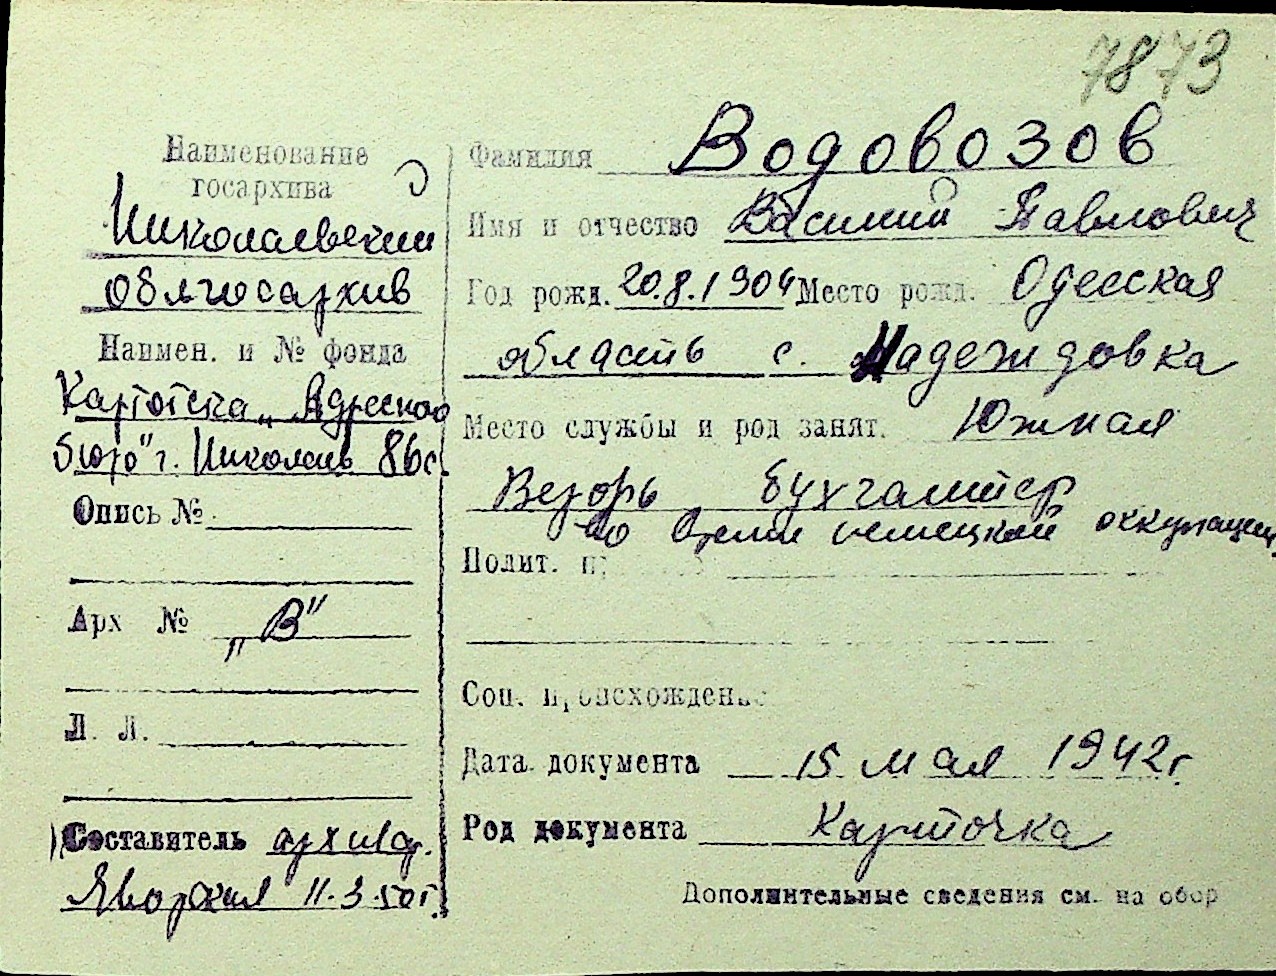 7873
Наименование
госархива
Николаевский
облгосархив
Наимен. и № фонда
Картотека „Адресное
бюро" г. Николаев 86с.
Опись №
Арх №
„В"
Л. Л.
Составитель архивар.
Яворская 11.3.50г.
Фамилия Водовозов
Имя и отчество Василий Павлович
Год рожд. 20.8.1904 Место рожд. Одесская
область с. Надеждовка
Место службы и род занят. Южная
Верфь бухгалтер
во время немецкой оккупации
Полит.
Соц. происхождение
Дата документа 15 мая 1942г.
Род документа Карточка
Дополнительные сведения см. на обор